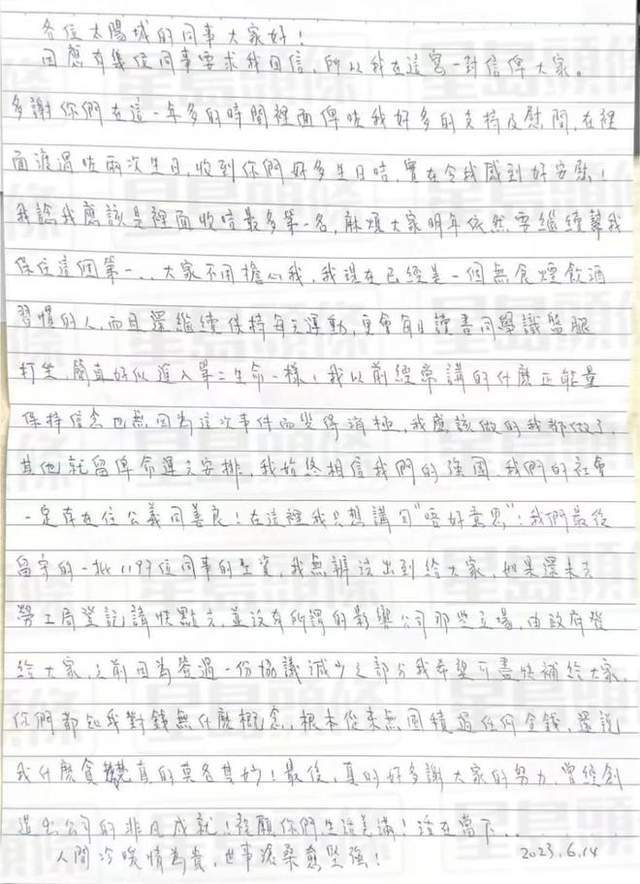 各位太陽城的同事大家好！
因應有幾位同事要求我回信，所以我在這寫一封信俾大家。
多謝你們在這一年多的時間裡面俾咗我好多的支持及慰問，在裡
面渡過咗兩次生日，收到你們好多生日咭，實在令我感到好安慰！
我諗我應該是裡面收咭最多第一名，麻煩大家明年依然要繼續幫我
保住這個第一.. 大家不用擔心我，我現在已經是一個無食煙飲酒
習慣的人，而且還繼續保持每天運動，更會每日讀書同學識盤腿
打坐，簡直好似進入第二生命一樣！我以前經常講的什麼正能量
保持信念也無因為這次事件而變得消極，我應該做的我都做了，
其他就留俾命運之安排，我始終相信我們的強國，我們的社會
一定存在住公義同善良！在這裡我只想講句"唔好意思"：我們最後
留守的一批1197位同事的工資，我無辦法出到給大家，如果還未去
勞工局登記請快點去，並沒有所謂的影響公司那些立場，由政府發
給大家，之前因為簽過一份協議減少之部分我希望可盡快補給大家，
你們都知我對錢無什麼概念，根本從來無囤積過任何金錢，還說
我什麼貪 真的莫名其妙！最後，真的好多謝大家的努力，曾經創
造出公司的非凡成就！祝願你們生活美滿！活在當下..
人間冷暖情為貴，世事滄桑愈堅強！ 2023.6.14
星島頭條